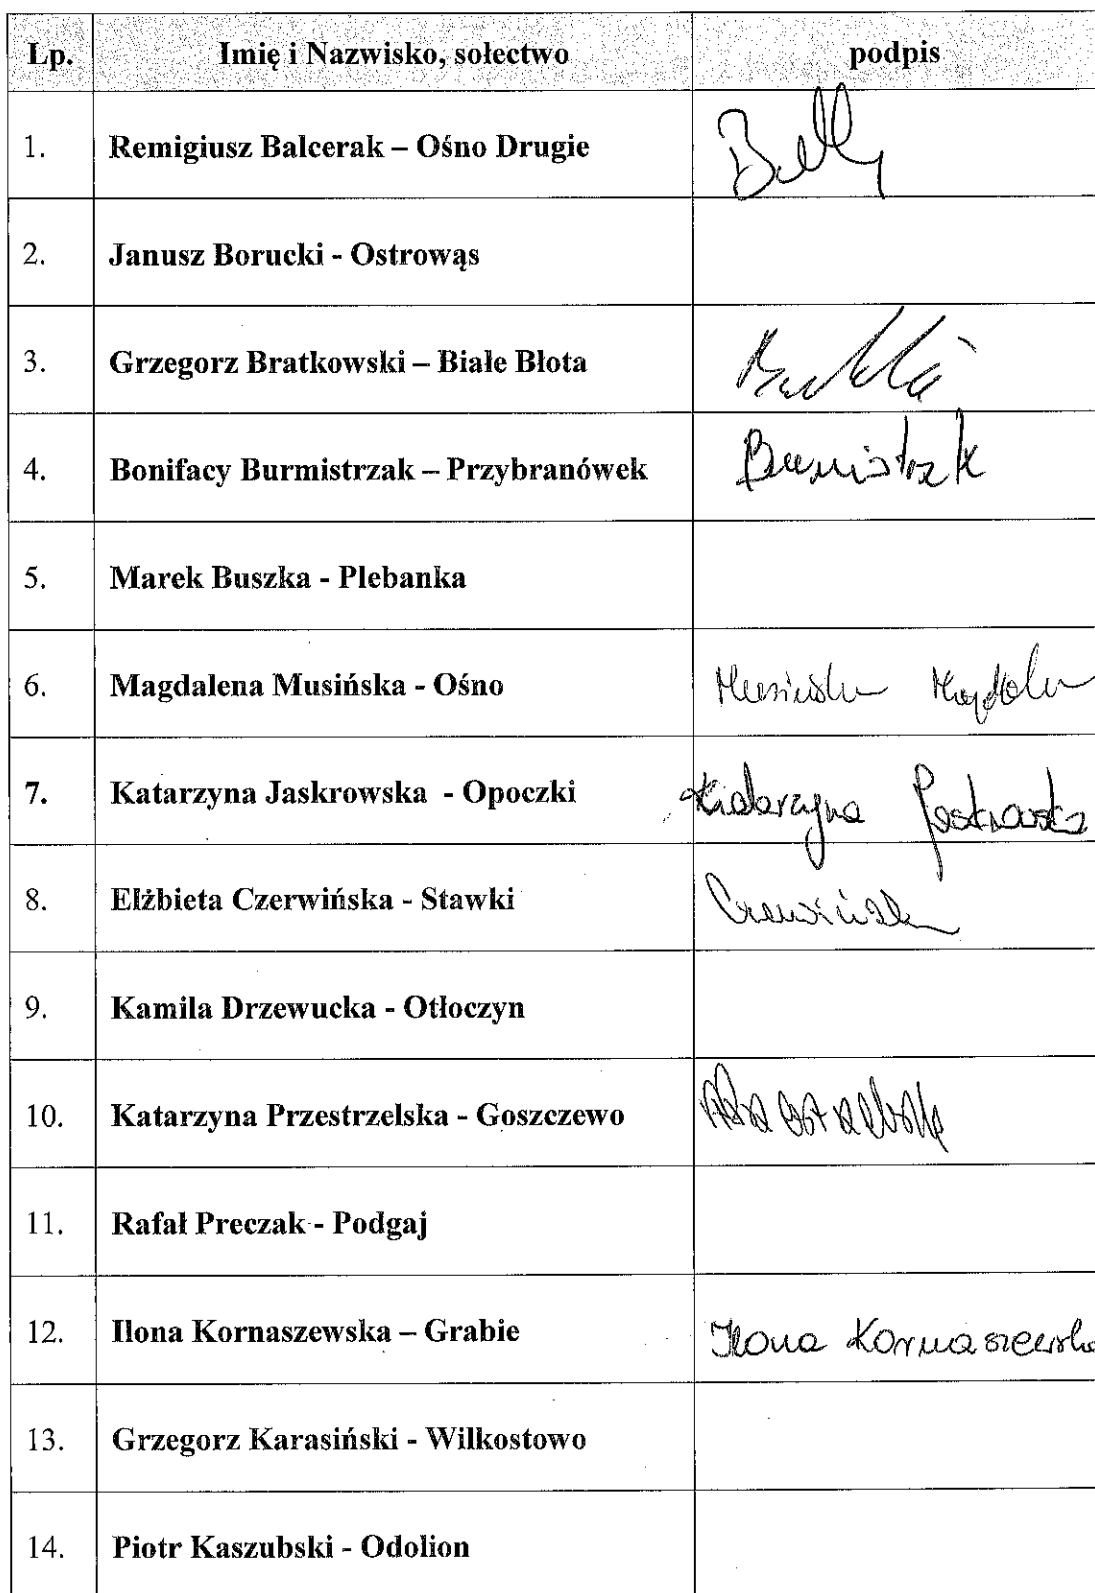 Lp. Imię i Nazwisko, sołectwo podpis
1. Remigiusz Balcerak – Ośno Drugie
2. Janusz Borucki - Ostrowąs
3. Grzegorz Bratkowski – Białe Błota
4. Bonifacy Burmistrzak – Przybranówek
5. Marek Buszka - Plebanka
6. Magdalena Musińska - Ośno
7. Katarzyna Jaskrowska - Opoczki Katarzyna
8. Elżbieta Czerwińska - Stawki
9. Kamila Drzewucka - Otłoczyn
10. Katarzyna Przestrzelska - Goszczewo
11. Rafał Preczak - Podgaj
12. Ilona Kornaszewska – Grabie Ilona Kornaszewska
13. Grzegorz Karasiński - Wilkostowo
14. Piotr Kaszubski - Odolion